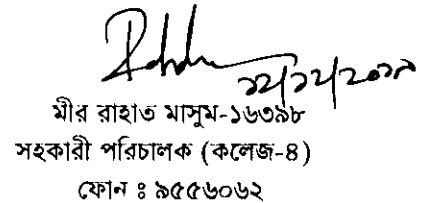 ১২/১২/২০১৯
মীর রাহাত মাসুম-১৬৩৯৮
সহকারী পরিচালক (কলেজ-৪)
ফোন ঃ ৯৫৫৬০৬২